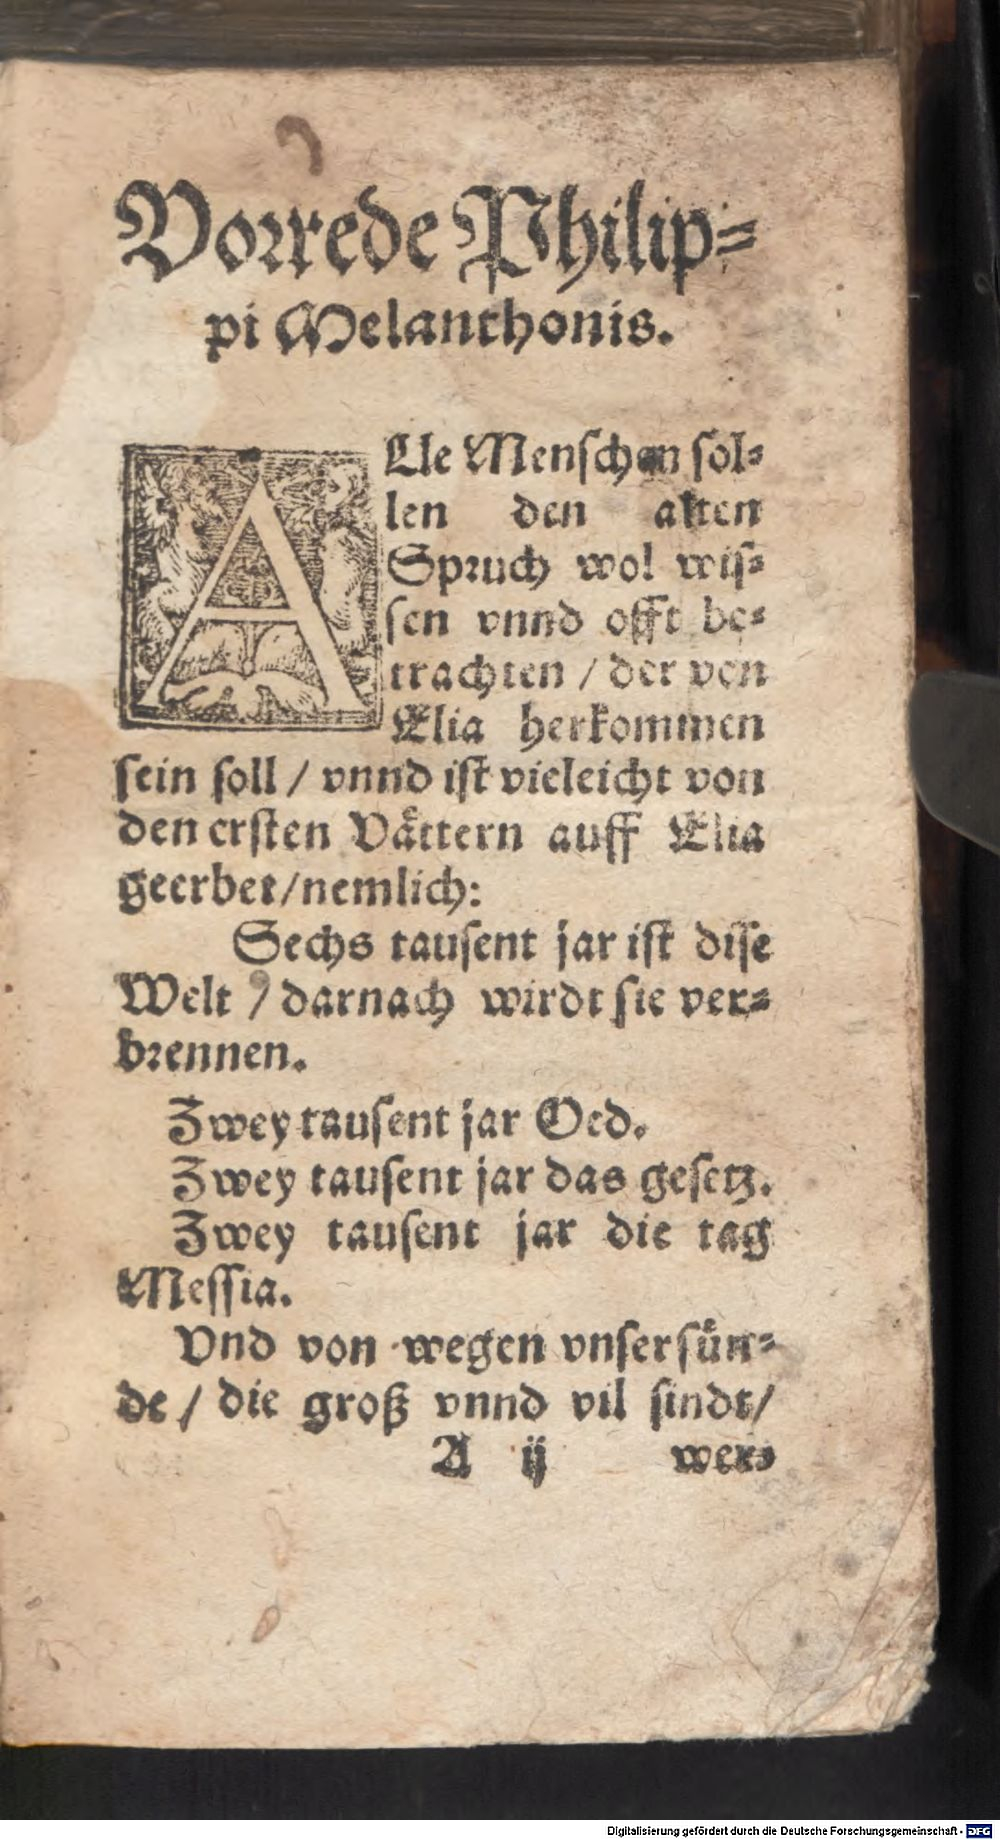 Vorrede Philip=
pi Melanthonis.
ALle Menschen sol=
len den alten
Spruch wol wis=
sen vnnd offt be=
trachten / der von
Elia herkommen
sein soll / vnnd ist vieleicht von
den ersten Vättern auff Elia
geerbet/nemlich:
Sechs tausent jar ist dise
Welt / darnach wirdt sie ver=
brennen.
Zwey tausent jar Oed.
Zwey tausent jar das gesetz.
Zwey tausent jar die tag
Messia.
Vnd von wegen vnser sün=
de / die groß vnnd vil sindt/
A ij wer=
Digitalisierung gefördert durch die Deutsche Forschungsgemeinschaft - DFG